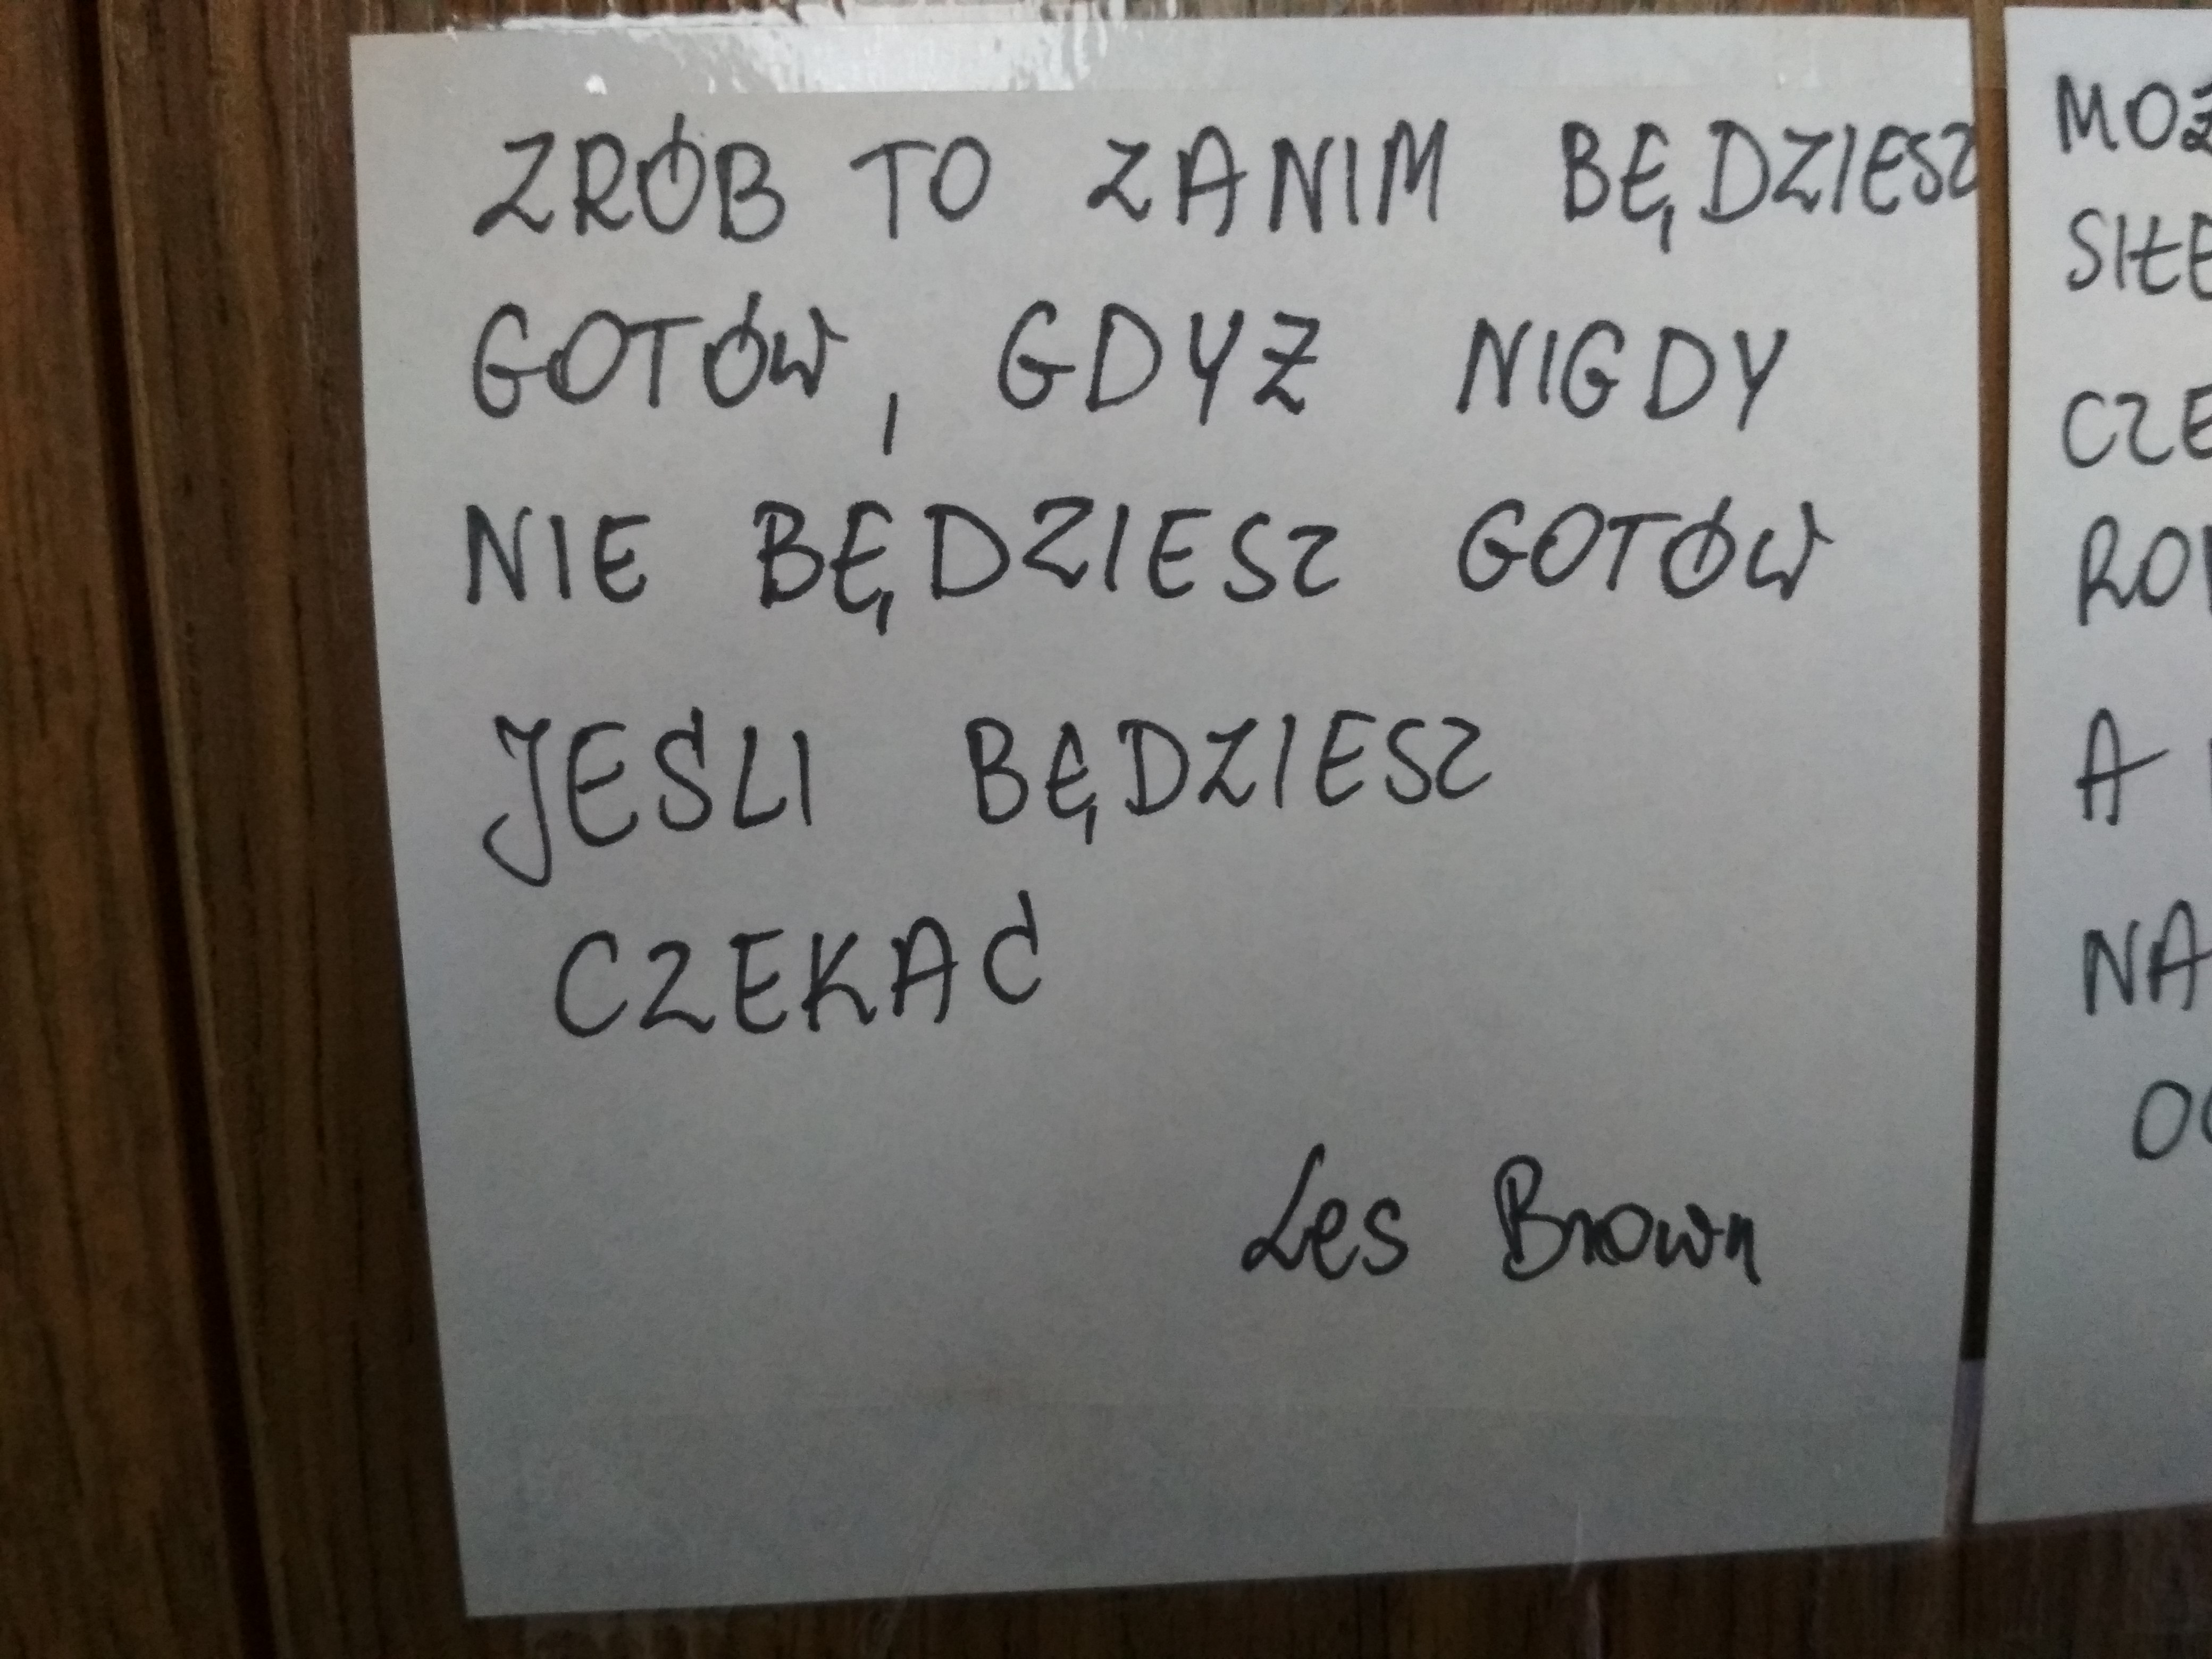 ZRÓB TO ZANIM BĘDZIESZ
GOTÓW, GDYŻ NIGDY
NIE BĘDZIESZ GOTÓW
JEŚLI BĘDZIESZ
CZEKAĆ
Les Brown
A